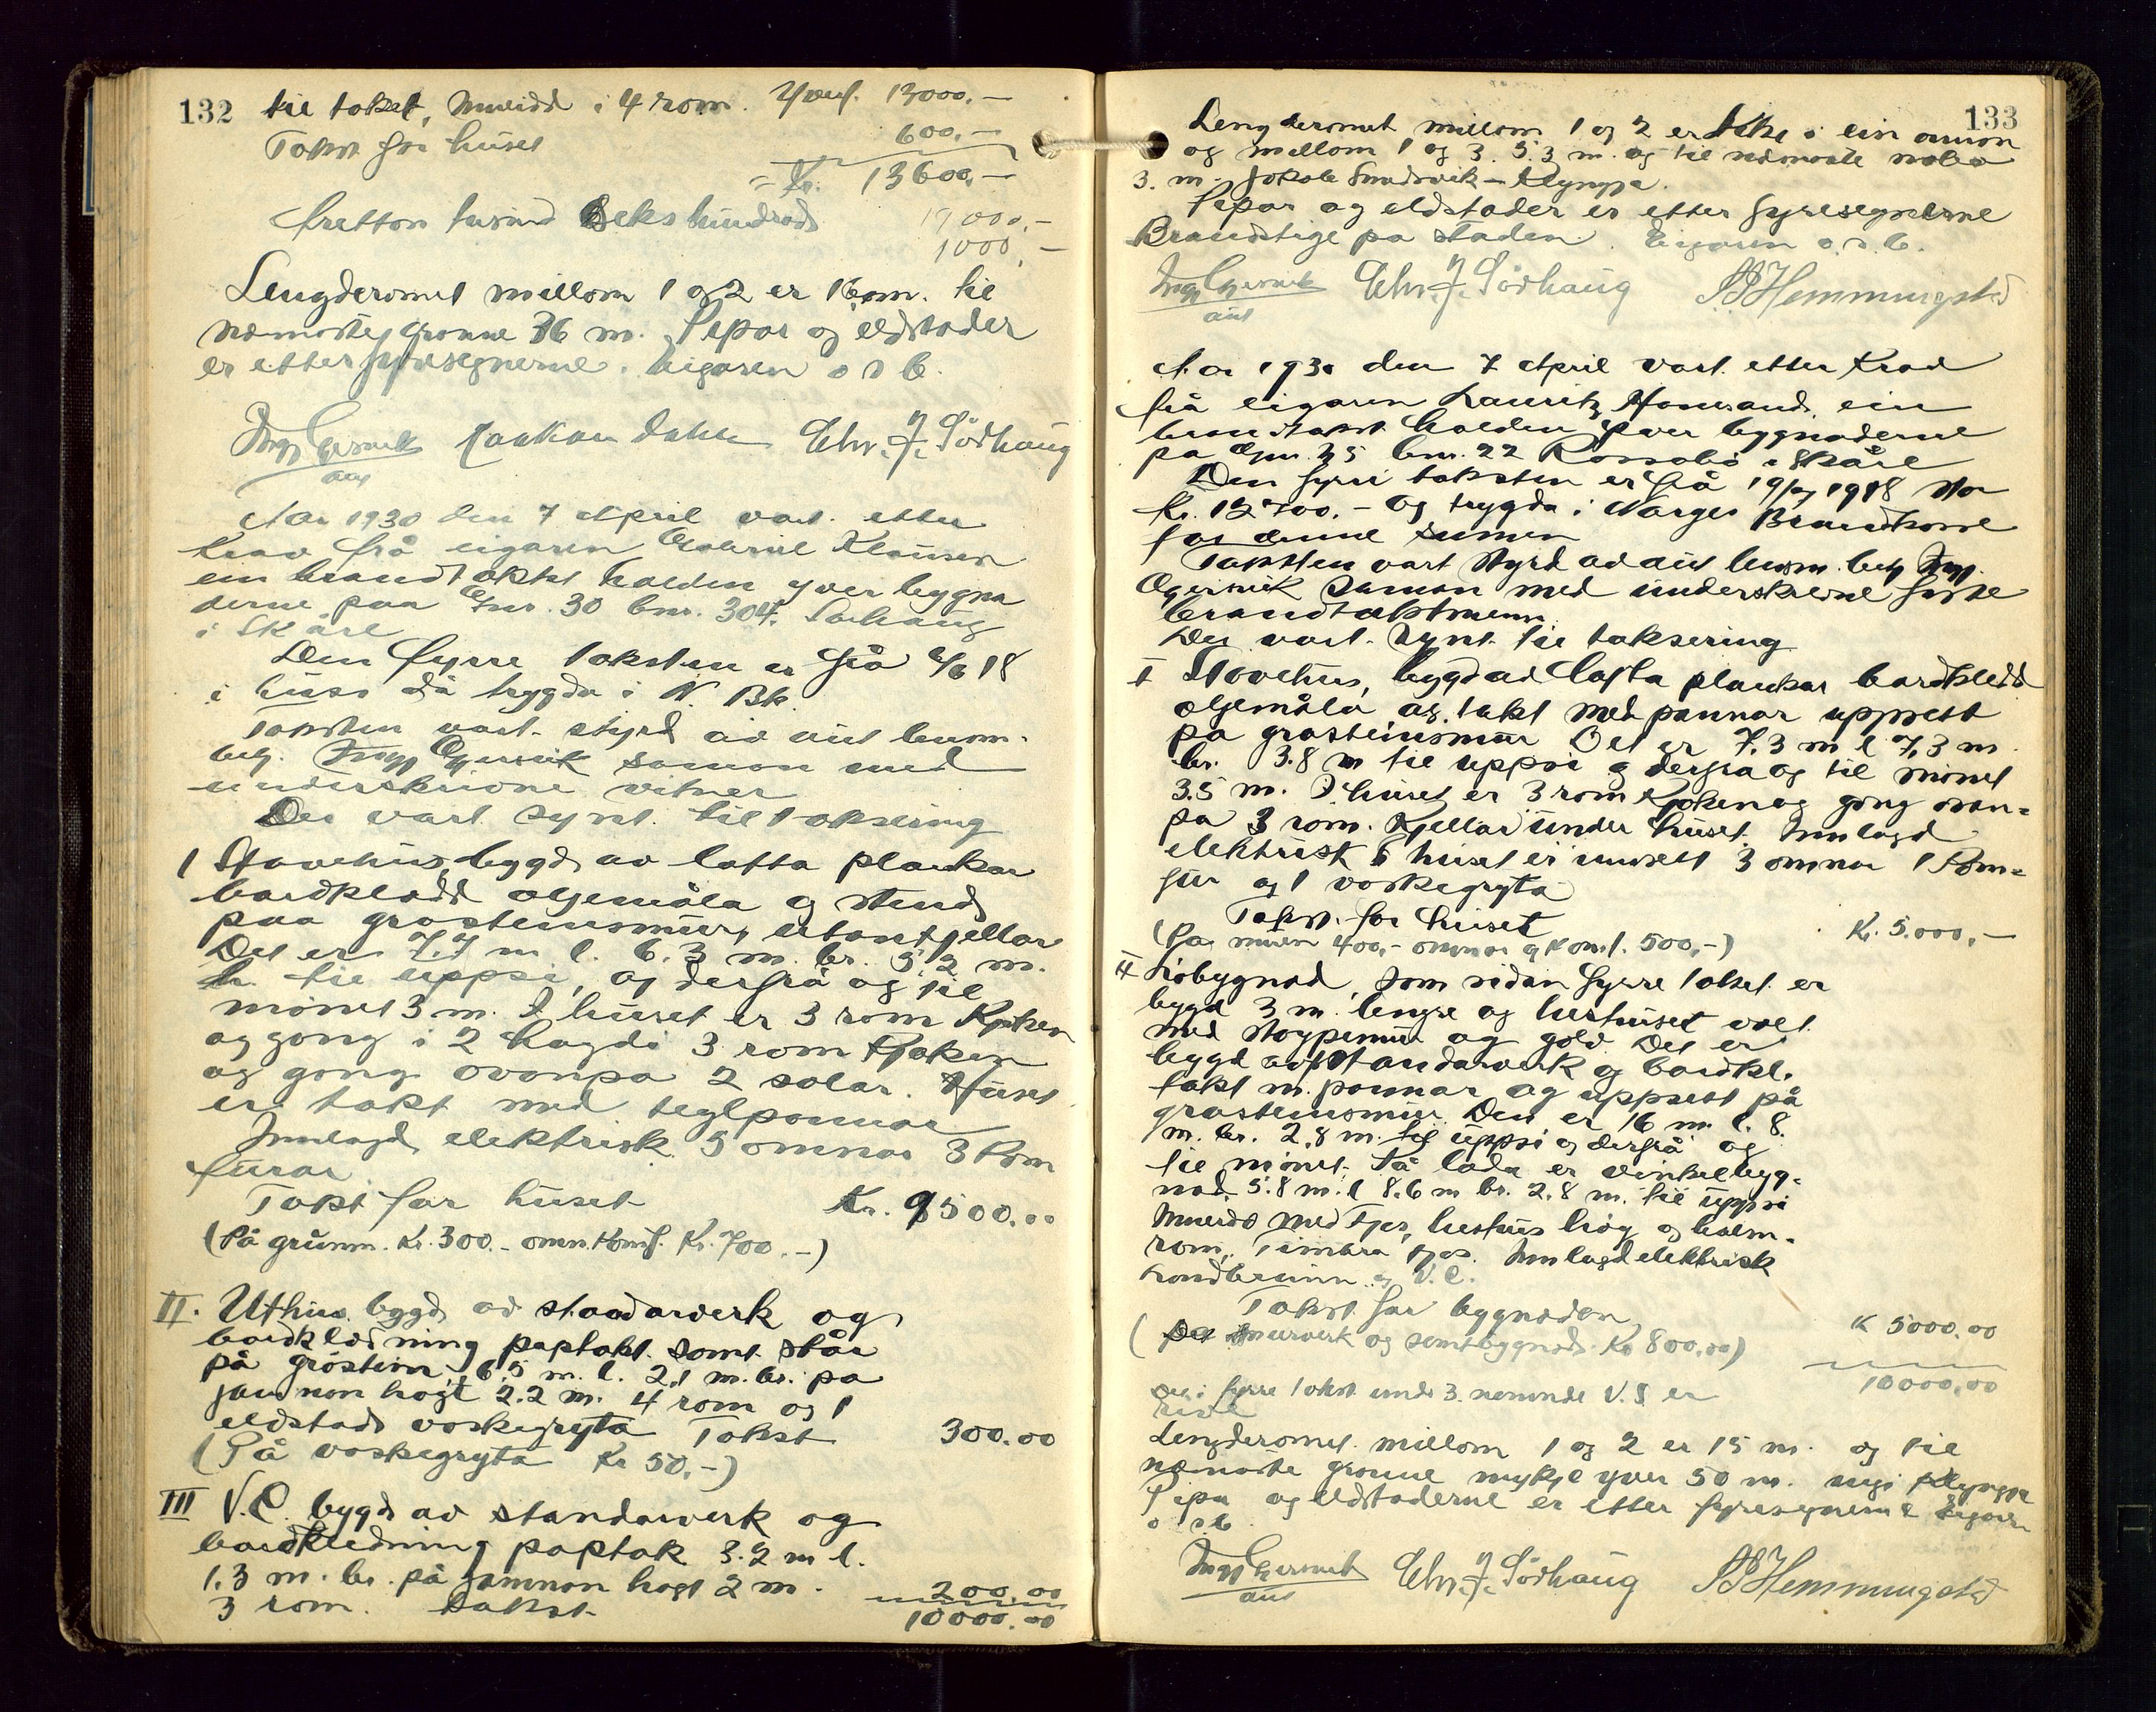 132
til taket, innreidd i 4 rom. Yverf. 13000.-
Takst for huset 600.-
= Kr. 13600.-
trettan tusind seks hundrad 19000.-
1000.-
Lengderomet millom 1 og 2 er 16 m. til
næmaste granne 36 m. Pepar og eldstader
er etter fyresegnerne. Eigaren o s b.
Ing Gjersvik Haakon Dahle Chr. J. Sörhaug
aut
Aar 1930 den 7 april vart etter
krav frå eigaren Gabriel Klausen
ein brandtakst halden yver bygna
derne paa Gnr. 30 bnr. 304. Sørhaug
i Skåre
Den fyrre taksten er frå 18
i huset då trygda i N. Bk.
Taksten vart styrd av aut lensm.
betj. Ing Gjersvik saman med
underskrivne vitner
Der vart synt til taksering
1 Stovehus, bygd av lafta plankar
bordkledd oljemåla og stend
paa grasteinsmur, utan kjellar
Det er 7.7 m l. 6.3 m. br. 5.2 m.
h. til uppsi, og derfrå og til
mønet 3 m. I huset er 3 rom Kjøken
og gong i 2 høgdi 3 rom kjøken
og gong ovanpa 2 salar. Huset
er takt med teglpannar
Innlagd elektrisk 5 omnar 3 kom
furar
Takst for huset Kr. 9500.00
(På grunm. Kr. 300.- omn. komf. Kr. 700.-)
II. Uthus bygd av standarverk og
bordkledning paptakt somt står
på gråstein, 6.5 m. l. 2.1 m. br. på
jamnon høgt 2.2 m. 4 rom og 1
eldstad vaskegryta Takst 300.00
(På vaskegryta Kr 50.-)
III V.C. bygd av standarverk og
bordkledning paptak 3.2 m l.
1.3 m. br. på jamnon høgt 2 m.
3 rom. Takst 200.00
10000.00
133
Lengderomet millom 1 og 2 er like i ein annon
og millom 1 og 3. 5.3 m. og til næmaste nabo
3. m. Jokob Sundsvik - klyngja.
Pepar og eldstader er etter fyresegnerne
Brandstige på staden. Eigaren o. s. b.
Ing Gjersvik Chr. J. Sörhaug Hemmingstad
aut
Aar 1930 den 7 april vart etter krav
frå eigaren Lauritz ein
brandtakst halden yver bygnaderne
på Gnr. 35 bnr. 22 Rossabø i Skåre
Den fyrre taksten er frå 1918 stor
kr. 12700.- og trygda i Norges Brandkasse
for denne sumen
Taksten vart styrd av aut lensm. betj Ing.
Gjersvik saman med underskrivne faste
brandtakstmenn.
Der vart synt til taksering
I Stovehus, bygd av lafta plankar bordkledd
oljemåla og takt med pannar uppsett
på grasteinsmur Det er 7.3 m l 7.3 m.
br. 3.8 m til uppsi og derfra og til mønet
3.5 m. I huset er 3 rom Kjøken og gong ovan-
pa 3 rom. Kjellar under huset. Innlagd
elektrisk I huset er innsett 3 omnar 1 kom-
fur og 1 vaskegryta
Takst for huset Kr. 5.000.-
(Pa muren 400.- omnar og komf. 500.-)
II Løbygnad, som sidan fyrre takst er
bygd 3 m. lengre og hesthuset
med støypemur og golv. Det er
bygd av standarverk og bordkl.
takt m. pannar og uppsett på
grasteinsmur Den er 16 m. l. 8.
m. br. 2.8 m. til uppsi og derfrå og
til mønet. På lada er vinkelbyg-
nad. 5.8 m. l 8.6 m br. 2.8 m. til uppsi
Innreidd med fjos, hesthus høy og halm-
rom. Timbra fjos. Innlagd elektrisk
Landbrunn og V.C.
Takst for bygnaden K 5000.00
(På murverk og sementbygnad Kr 800.00)
10000.00
Det i fyrre takst under 3. nemnde V.S er
rive
Lengderomet millom 1 og 2 er 15 m. og til
næmaste granne mykje yver 50 m. ingi klyngja
Pepa og eldstaderne er etter fyresegnerne Eigaren
o s b
Ing Gjersvik Chr. J. Sörhaug Hemmingstad
aut